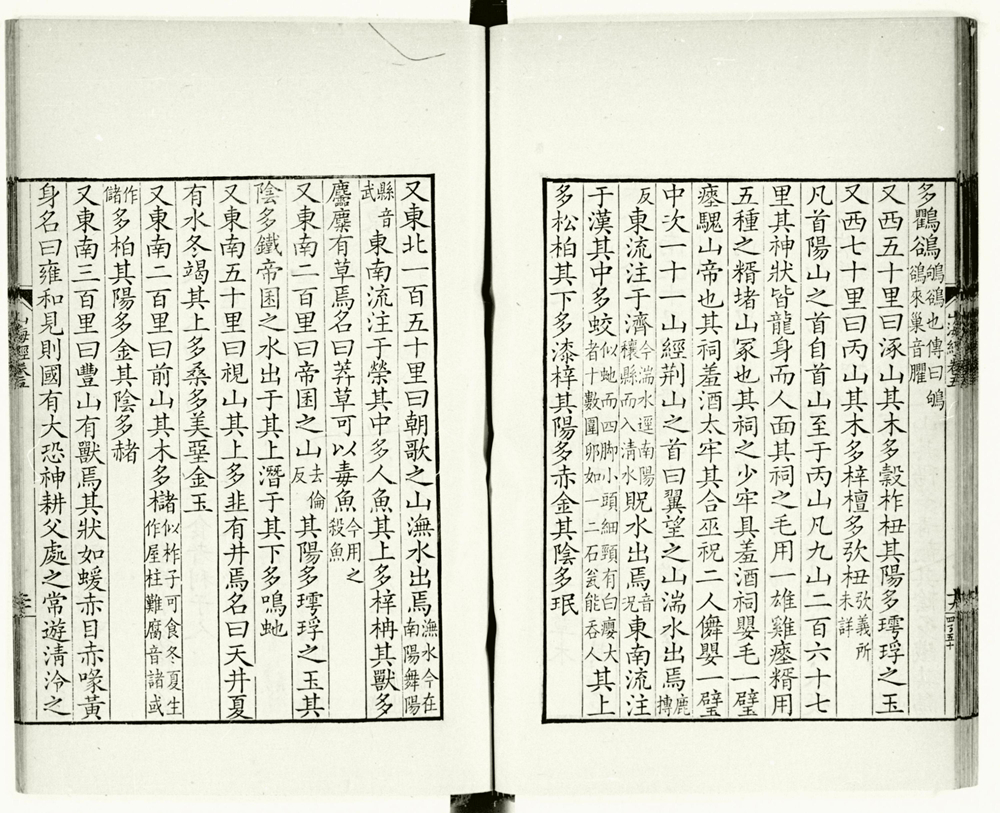 多鸜鵒鴝鵒也傳曰鴝鵒來巢音臞
又西五十里曰涿山其木多榖柞杻其陽多㻬琈之玉
又西七十里曰丙山其木多梓檀多弞杻弞義所未詳
凡首陽山之首自首山至于丙山凡九山二百六十七
里其神狀皆龍身而人面其祠之毛用一雄雞瘞糈用
五種之糈堵山冢也其祠之少牢具羞酒祠嬰毛一璧
瘞騩山帝也其祠羞酒太牢其合巫祝二人儛嬰一璧
中次一十一山經荊山之首曰翼望之山湍水出焉鹿摶
反東流注于濟今湍水逕南陽穰縣而入清水貺水出焉音況東南流注
于漢其中多蛟似虵而四脚小頭細頸有白癭大者十數圍卵如一二石瓮能吞人其上
多松柏其下多漆梓其陽多赤金其陰多珉
又東北一百五十里曰朝歌之山潕水出焉潕水今在南陽舞陽
縣音武東南流注于滎其中多人魚其上多梓枬其獸多
麢麋有草焉名曰莽草可以毒魚今用之殺魚
又東南二百里曰帝囷之山去倫反其陽多㻬琈之玉其
陰多鐵帝囷之水出于其上潛于其下多鳴虵
又東南五十里曰視山其上多韭有井焉名曰天井夏
有水冬竭其上多桑多美堊金玉
又東南二百里曰前山其木多櫧似柞子可食冬夏生作屋柱難腐音諸或
作儲多柏其陽多金其陰多赭
又東南三百里曰豐山有獸焉其狀如蝯赤目赤喙黃
身名曰雍和見則國有大恐神耕父處之常遊淸泠之
山海經卷五